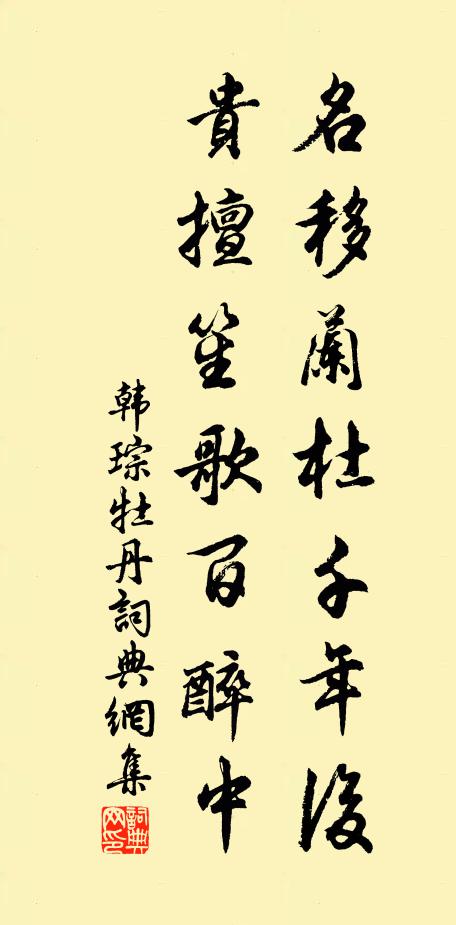 名移蘭杜千年後
貴擅笙歌百醉中
韩琮牡丹詞典網集
詞典网印